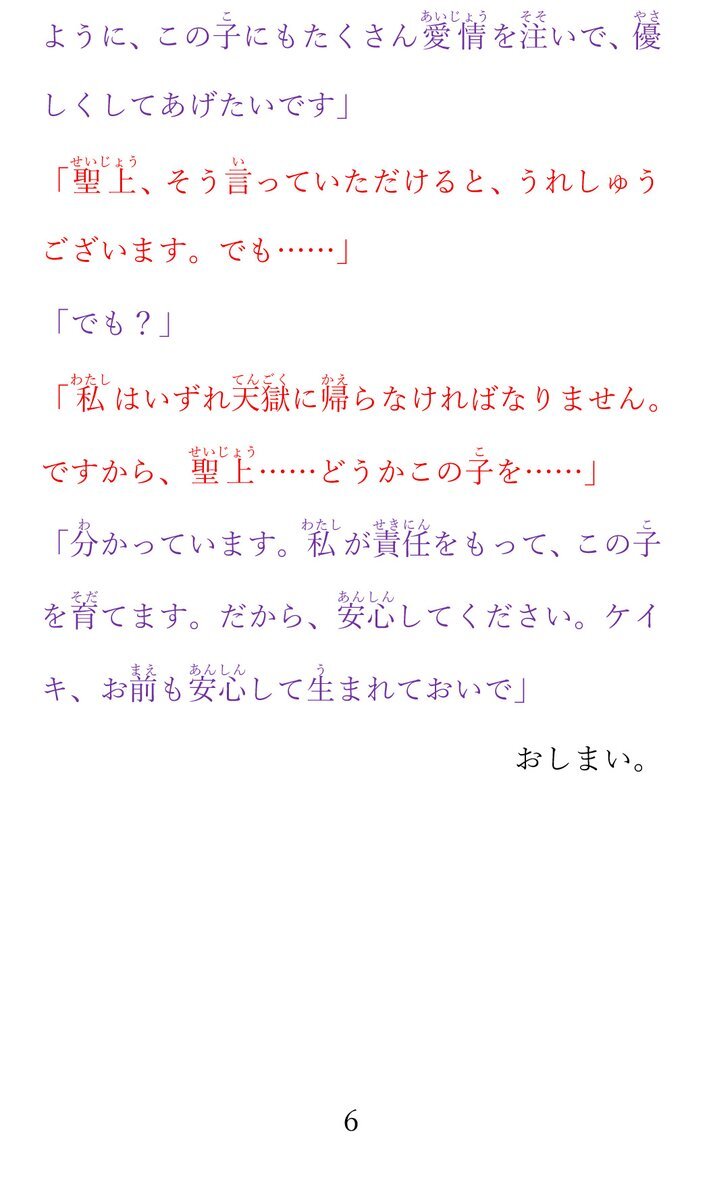 ように、この子にもたくさん愛情を注いで、優
しくしてあげたいです」
「聖上、そう言っていただけると、うれしゅう
ございます。でも……」
「でも？」
「私はいずれ天獄に帰らなければなりません。
ですから、聖上……どうかこの子を……」
「分かっています。私が責任をもって、この子
を育てます。だから、安心してください。ケイ
キ、お前も安心して生まれておいで」
おしまい。
6